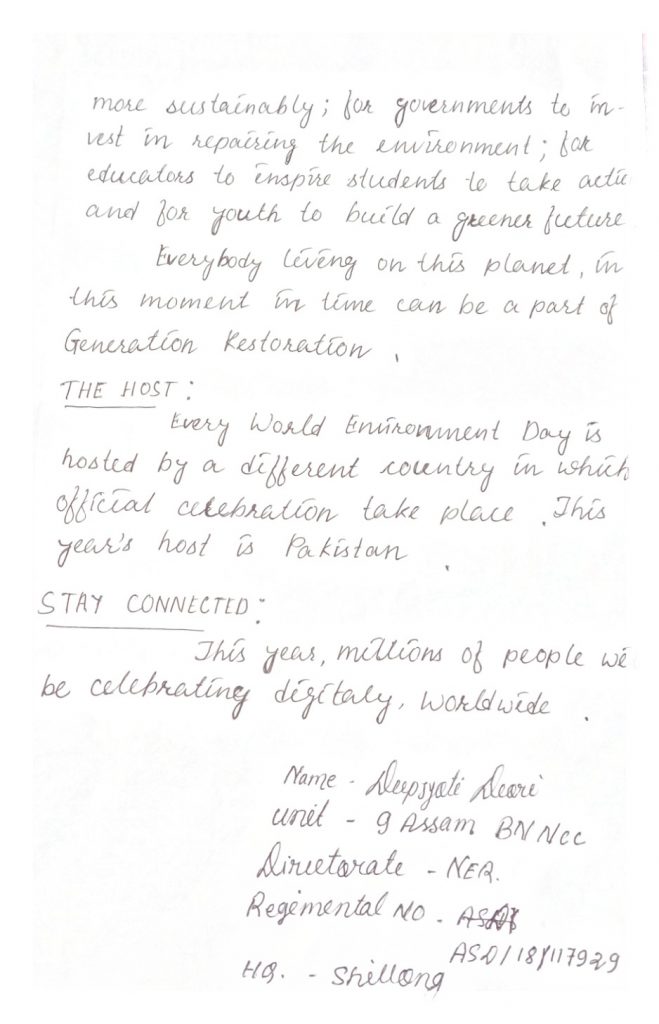 more sustainably; for governments to in-
vest in repairing the environment; for
educators to inspire students to take actio
and for youth to build a greener future
Everybody living on this planet, in
this moment in time can be a part of
Generation Restoration.
THE HOST:
Every World Environment Day is
hosted by a different country in which
official celebration take place. This
year's host is Pakistan.
STAY CONNECTED:
This year, millions of people wi
be celebrating digitaly, worldwide.
Name - Deepjyoti Deori
Unit - 9 Assam BN NCC
Directorate - NER.
Regimental NO -
ASD/18/117929
HQ. - Shillong